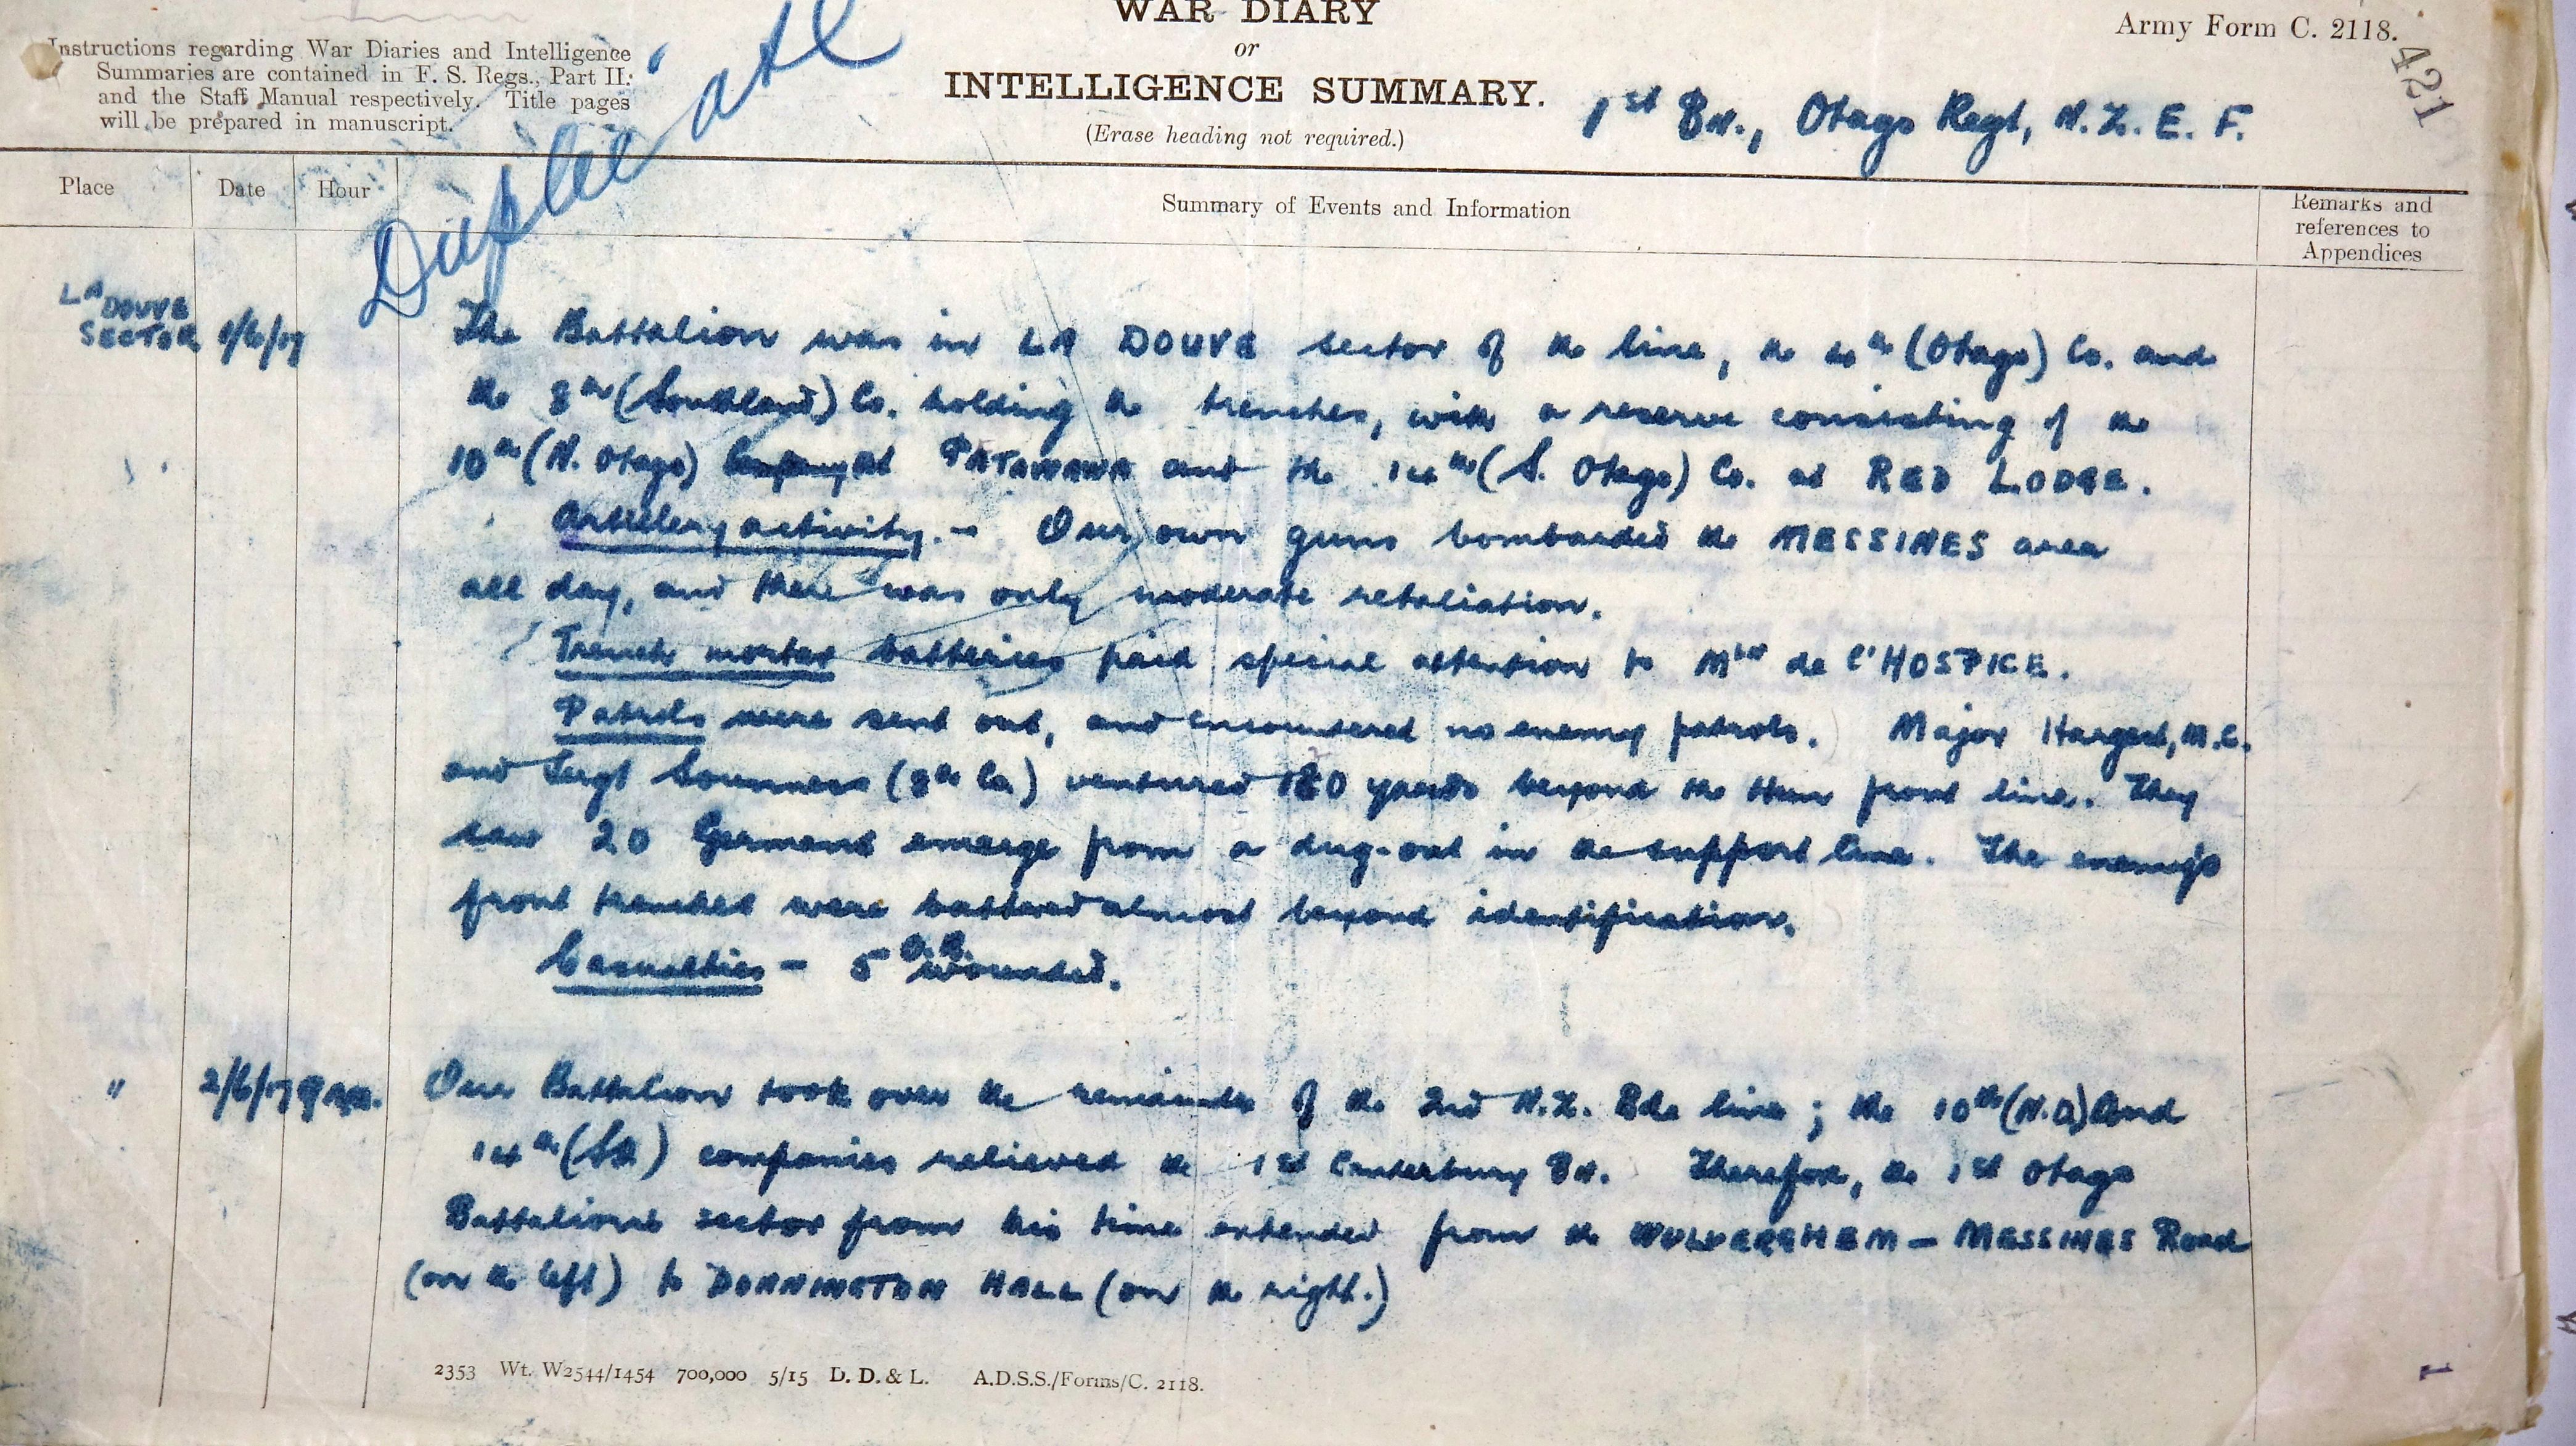 WAR DIARY
or
INTELLIGENCE SUMMARY.
(Erase heading not required.)
Army Form C. 2118.
421
Instructions regarding War Diaries and Intelligence
Summaries are contained in F. S. Regs., Part II.
and the Staff Manual respectively. Title pages
will be prepared in manuscript.
Duplicate
1st Bn., Otago Regt, N.Z.E.F.
Place Date Hour Summary of Events and Information Remarks and
references to
Appendices
LA DOUVE
SECTOR 1/6/17 The Battalion was in LA DOUVE sector of the line, the 4th (Otago) Co. and
the 8th (Southland) Co. holding the trenches, with a reserve consisting of the
10th (N. Otago) Company at PATAWAWA and the 14th (S. Otago) Co. at RED LODGE.
Artillery activity. - Our own guns bombarded the MESSINES area
all day, and there was only moderate retaliation.
Trench mortar batteries paid special attention to Mtn de l'HOSPICE.
Patrols were sent out, and encountered no enemy patrols. Major Hargest, M.C.
and Sergt Sounness (8th Co.) ventured yards beyond the Hun front line. They
saw 20 Germans emerge from a dug-out in the support line. The enemy's
front trenches were battered almost beyond identification.
Casualties - 5 O.R. wounded.
" 2/6/17 Our Battalion took over the remainder of the 2nd N.Z. Bde line; the 10th (N.O) and
14th (SO) companies relieved the 1st Canterbury Bn. Therefore, the 1st Otago
Battalion's sector from this time extended from the WULVERGHEM - MESSINES Road
(on the left) to DONNINGTON HALL (on the right.)
2353 Wt. W2544/1454 700,000 5/15 D. D. & L. A.D.S.S./Forms/C. 2118.
1